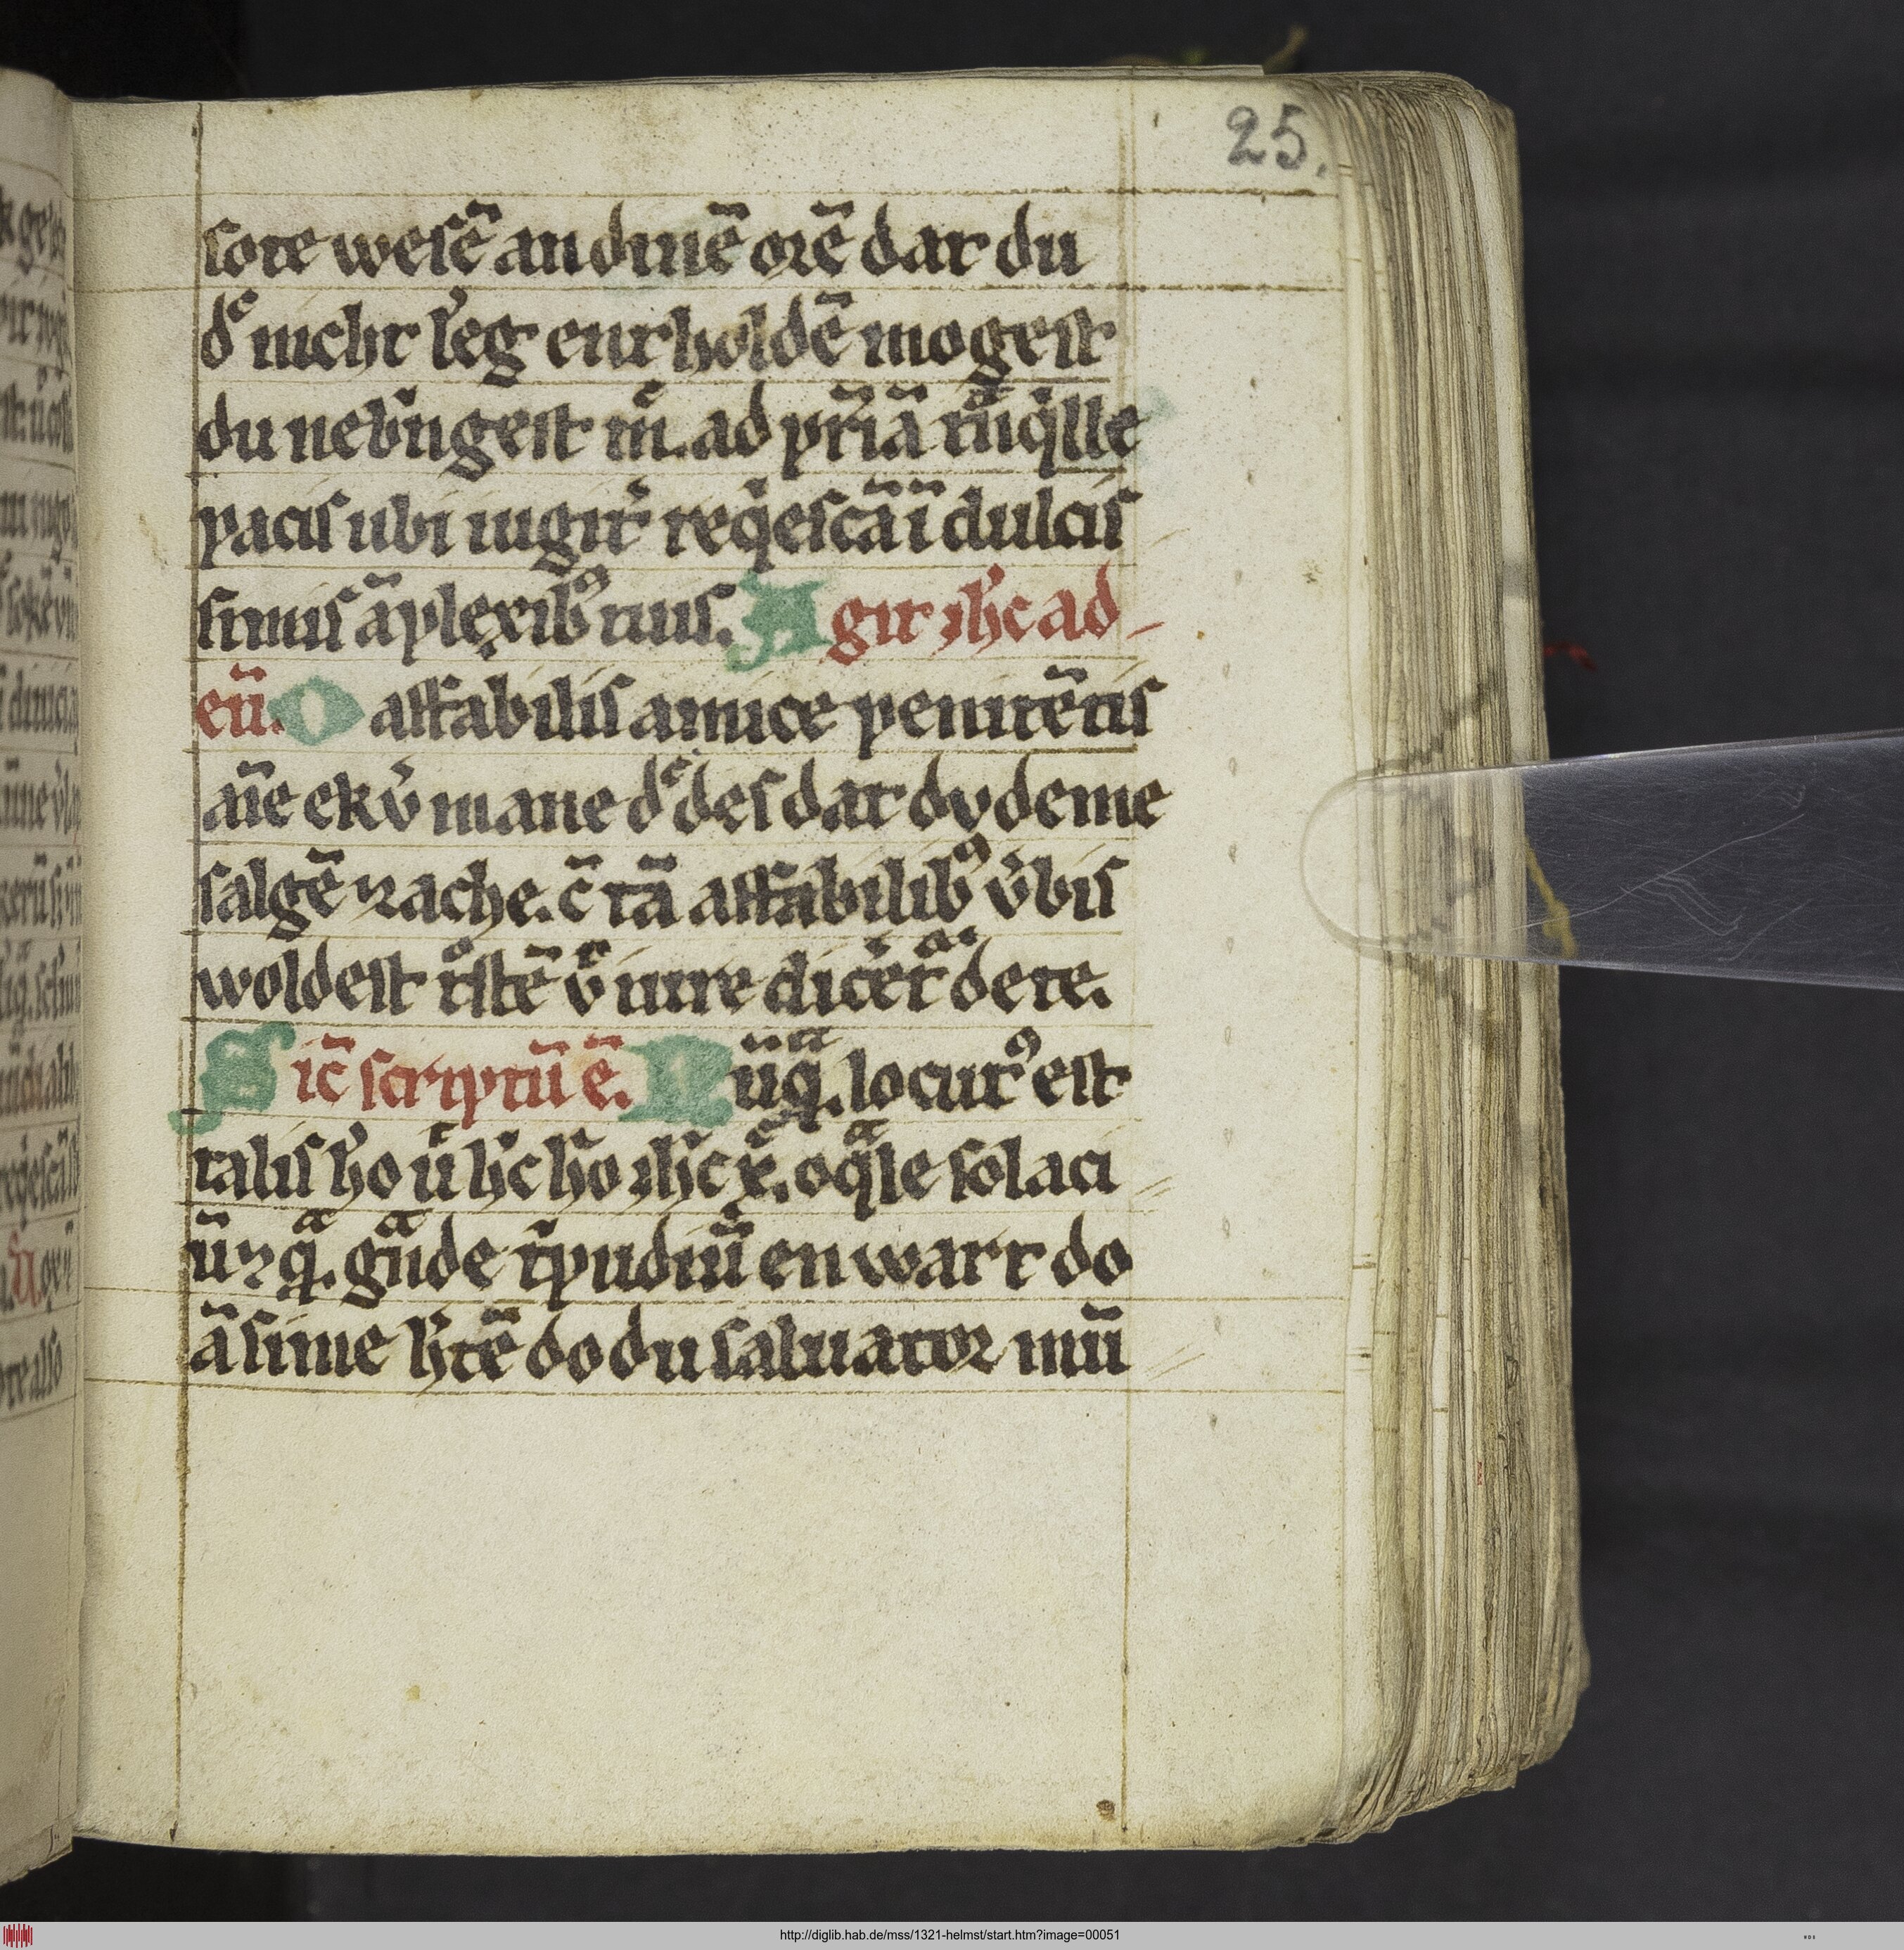 25.
sote wesē an dinē orē dat du
dͤ nicht leng ent holdē mogest
du nebr̄ngest m̄. ad pr̄iā tn̄qͥlle
pacis ubi iugit̾ reqͥescā ī dulcis
simis āplexibꝰ tuis. Agit ihc ad-
eū. O affabilis amice penitētis
aīe ek v̾mane dͤ des dat dv deme
salgē ꝛ ache. c̄ tā affabilibꝰ v̾bis
woldest tͦstē vͦn inre dicēt dete.
Sic̄ scriptū ē. Nūqͣ. locutꝰ est
talis hͦo ū hͨ hͦo ihc xͤ. o qͣle solaci
ū ꝛ qͣ. gͣnde tͥpudiū en wart do
ā sime htē do du saluator mū
http://diglib.hab.de/mss/1321-helmst/start.htm?image=00051